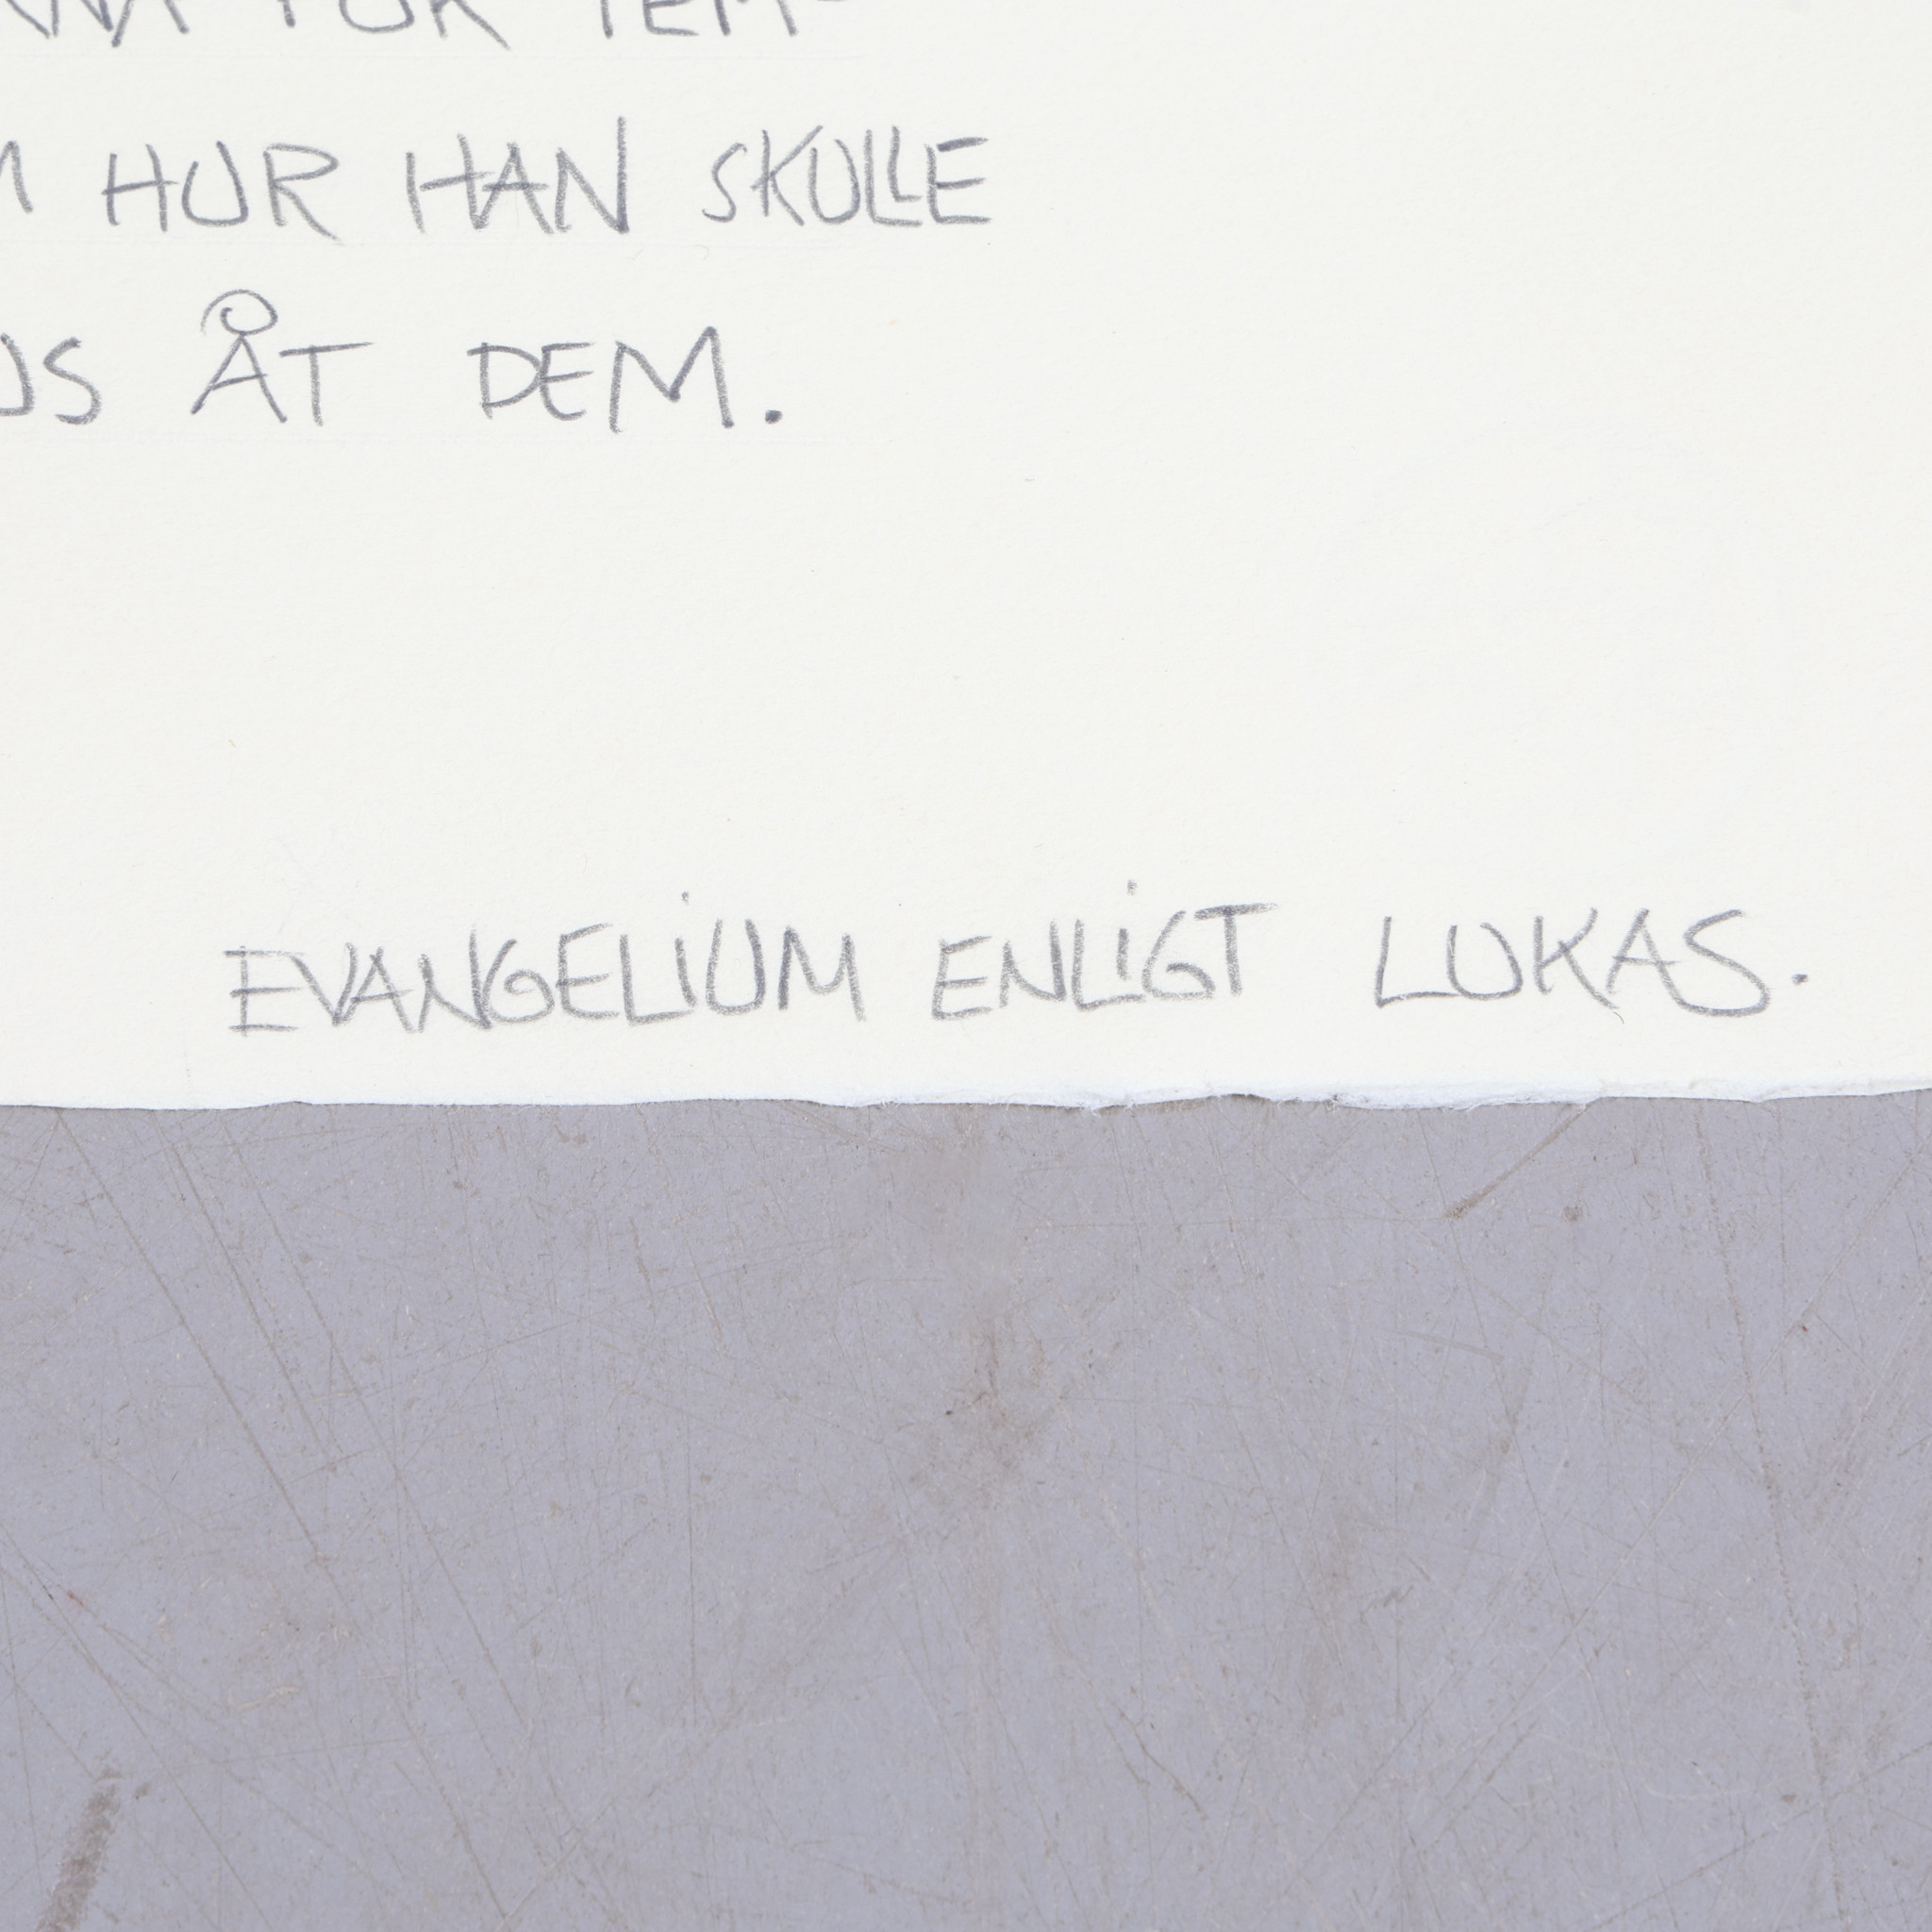 FÖR TEM-
HUR HAN SKULLE
ÅT DEM.
EVANGELIUM ENLiGT LUKAS.